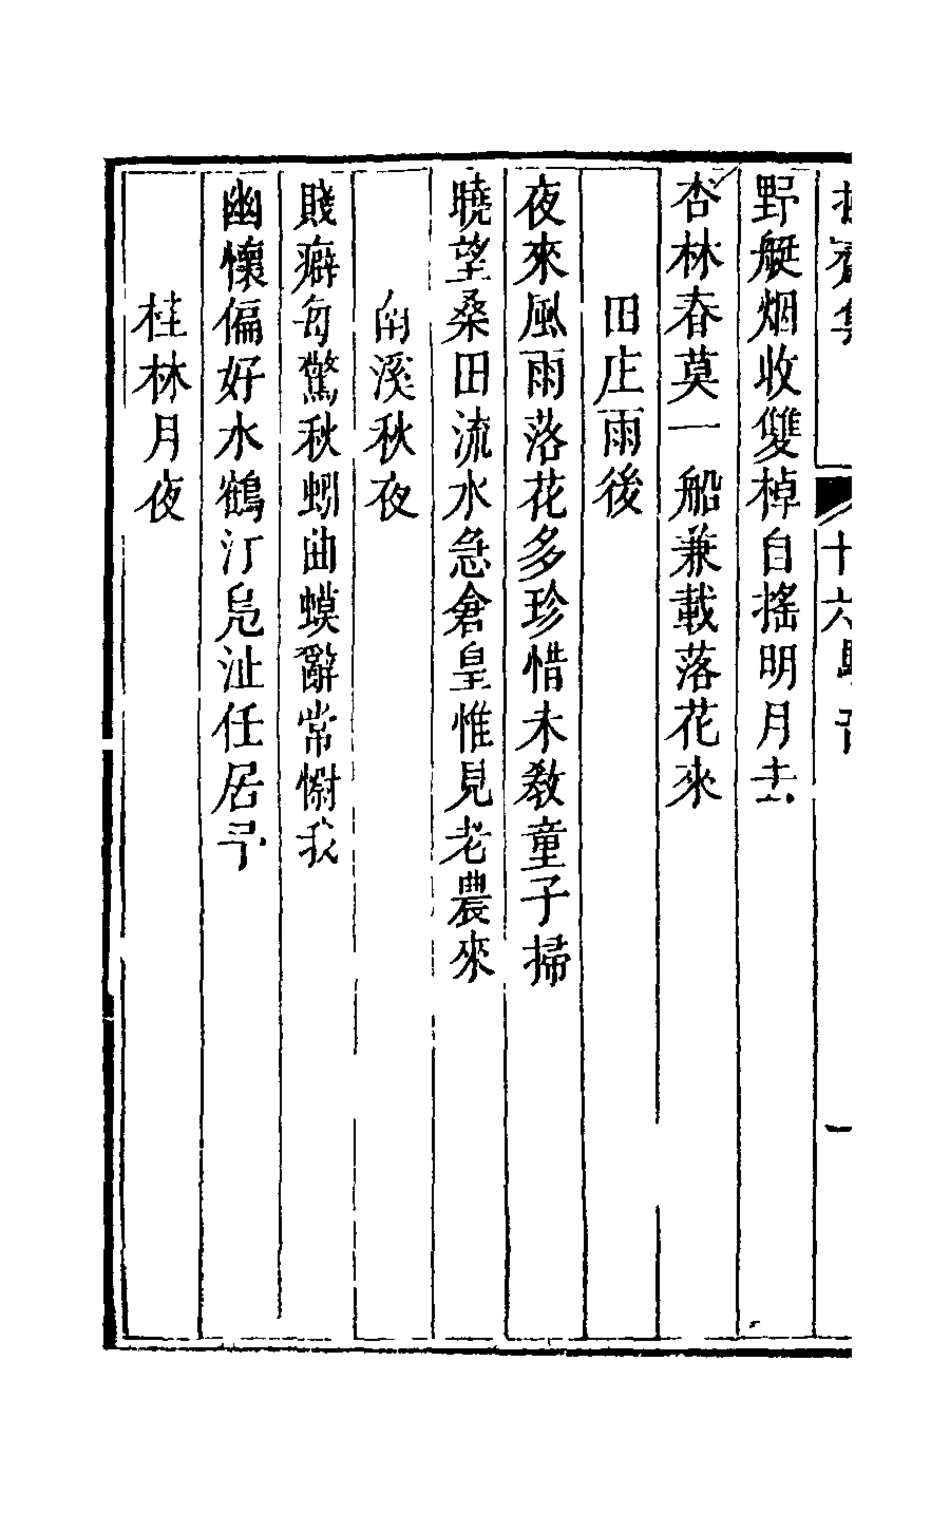 齋集 十六 一
野艇烟收雙棹自搖明月去
杏林春莫一船兼載落花來
田庄雨後
夜來風雨落花多珍惜未教童子掃
曉望桑田流水急倉皇惟見老農來
溪秋夜
賤癖每驚秋蚓曲蟆辭常懰我
幽懷偏好水鶴汀鳧沚任居予
桂林月夜